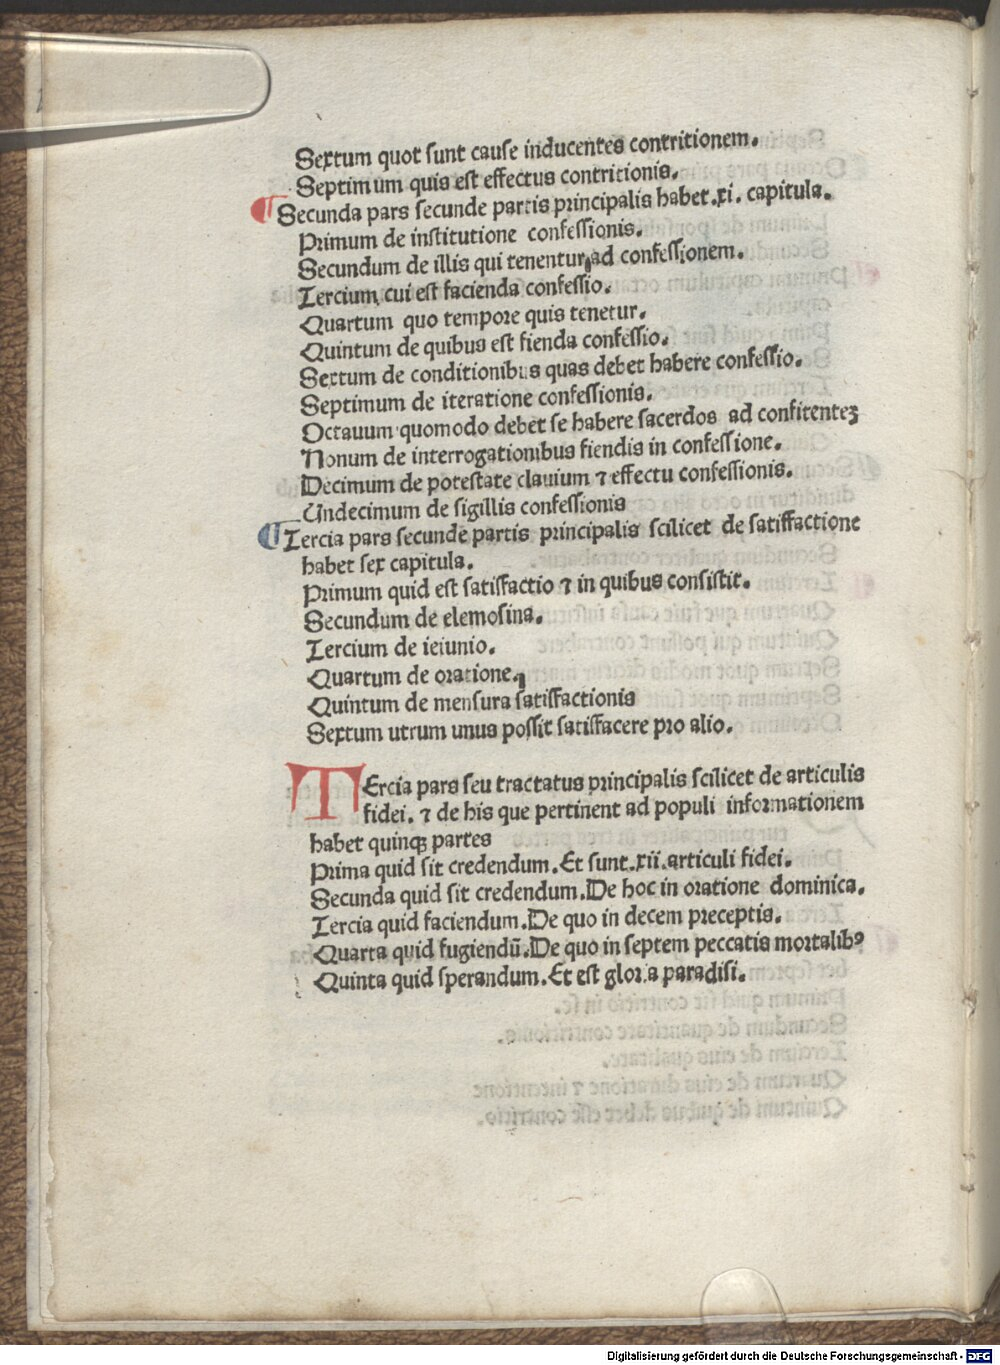 Sextum quot sunt cause inducentes contritionem.
Septimum quis est effectus contritionis.
¶ Secunda pars secunde partis principalis habet .xi. capitula.
Primum de institutione confessionis.
Secundum de illis qui tenentur ad confessionem.
Tercium cui est facienda confessio.
Quartum quo tempore quis tenetur.
Quintum de quibus est fienda confessio.
Sextum de conditionibus quas debet habere confessio.
Septimum de iteratione confessionis.
Octauum quomodo debet se habere sacerdos ad confitenteʒ
Nonum de interrogationibus fiendis in confessione.
Decimum de potestate clauium ⁊ effectu confessionis.
Undecimum de sigillis confessionis
¶ Tercia pars secunde partis principalis scilicet de satisfactione
habet sex capitula.
Primum quid est satisfactio ⁊ in quibus consistit.
Secundum de elemosina.
Tercium de ieiunio.
Quartum de oratione.
Quintum de mensura satisfactionis
Sextum utrum unus possit satisfacere pro alio.
TErcia pars seu tractatus principalis scilicet de articulis
fidei. ⁊ de his que pertinent ad populi informationem
habet quinqꝫ partes
Prima quid sit credendum. Et sunt .xii. articuli fidei.
Secunda quid sit credendum. De hoc in oratione dominica.
Tercia quid faciendum. De quo in decem preceptis.
Quarta quid fugiendū. De quo in septem peccatis mortalibꝰ
Quinta quid sperandum. Et est gloria paradisi.
Digitalisierung gefördert durch die Deutsche Forschungsgemeinschaft - DFG